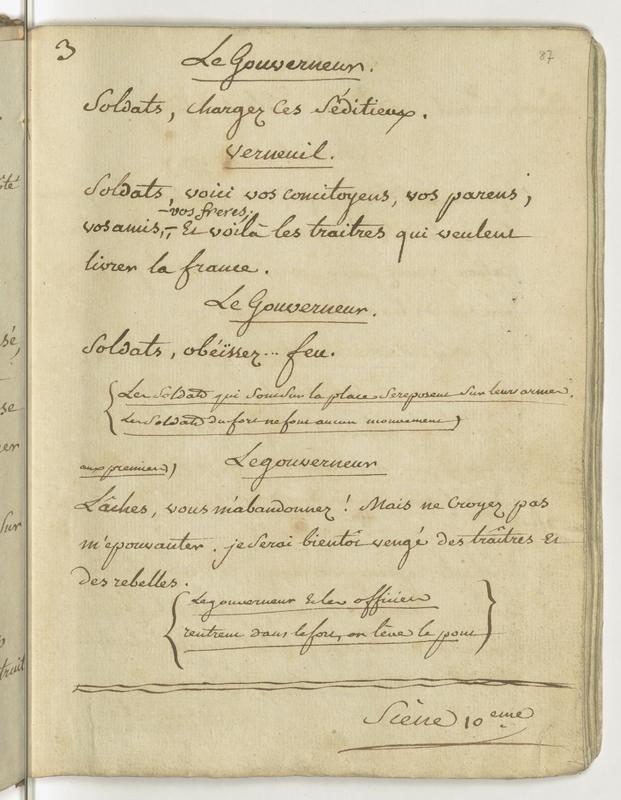 3
87
Le Gouverneur.
Soldats, chargez ces Séditieux.
Verneuil.
Soldats, voici vos concitoyens, vos parens,
-vos freres,
vos amis, - Et voilà les traitres qui veulent
livrer la france.
Le Gouverneur.
Soldats, obéissez... feu.
Les Soldats qui sont sur la place se reposent sur leurs armes.
Les Soldats du fort ne font aucun mouvement)
aux premiers) Le gouverneur
Lâches, vous m'abandonnez! Mais ne croyez pas
m'epouvanter. je serai bientôt vengé des traîtres Et
des rebelles.
Le gouverneur & les officiers
rentrent dans le fort, on lève le pont
Scène 10eme